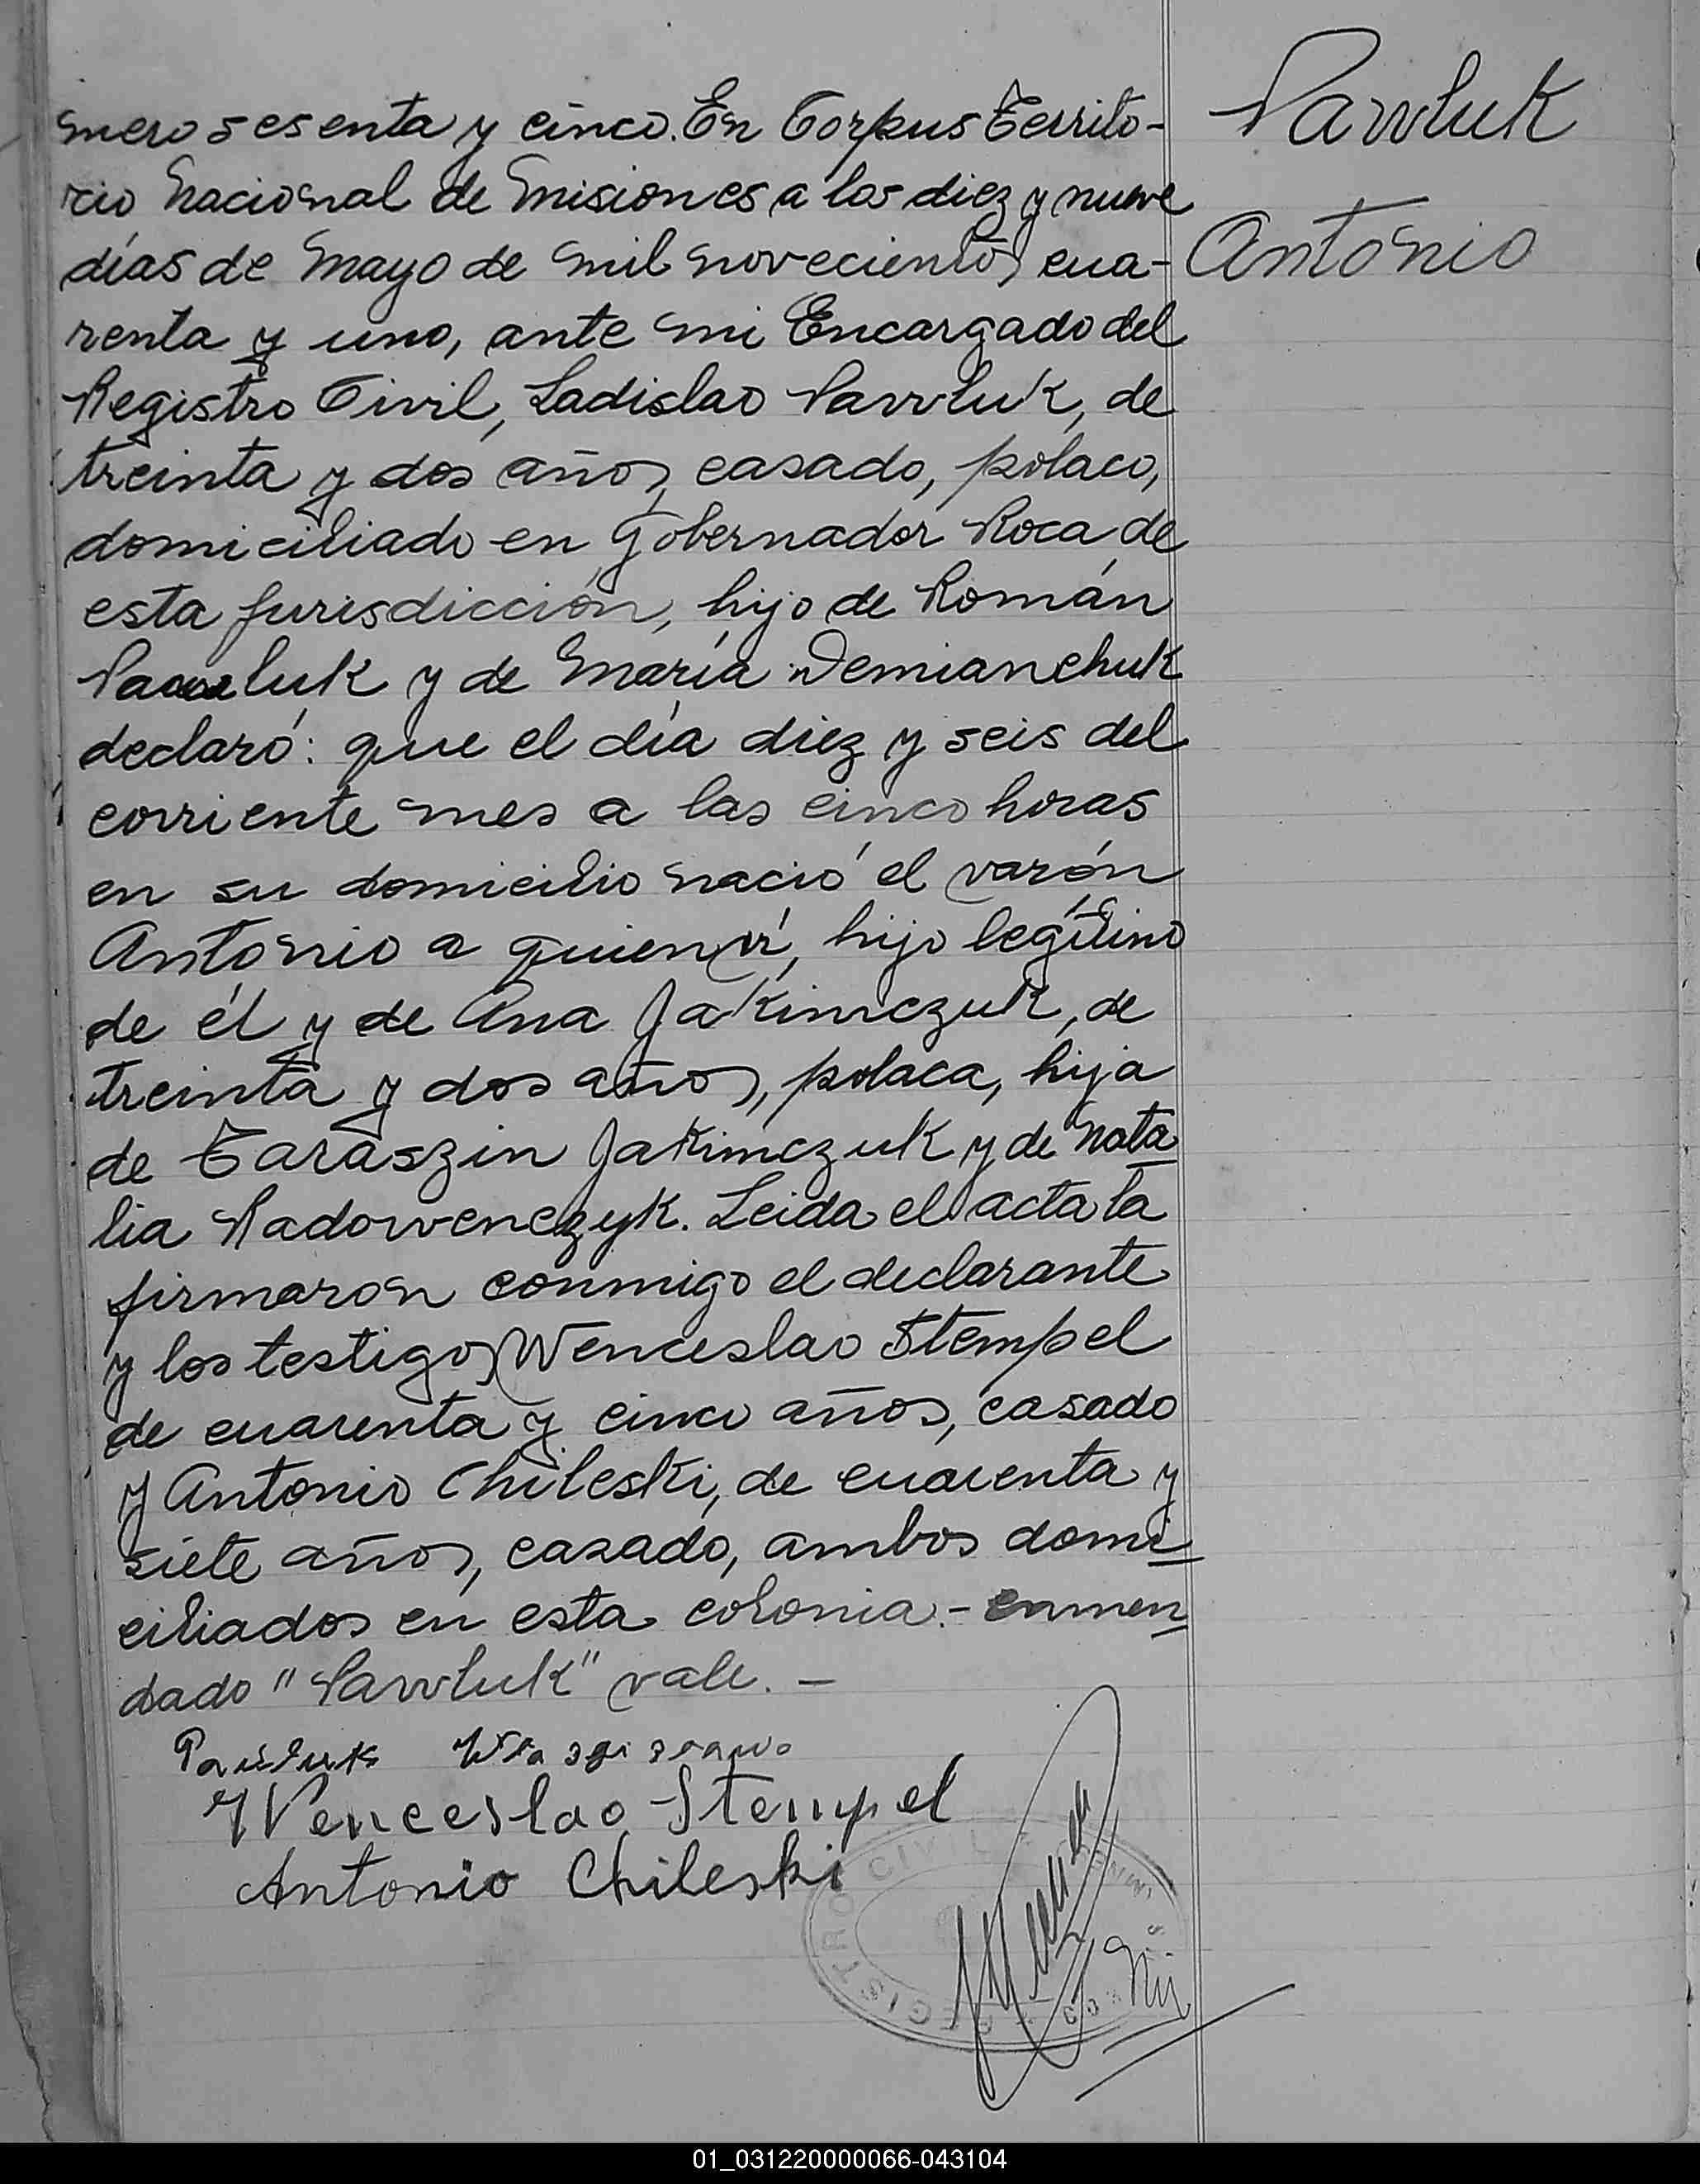 Pawluk
Antonio
mero sesenta y cinco. En Corpus Territo-
rio Nacional de Misiones a los diez y nueve
días de Mayo de mil novecientos cua-
renta y uno, ante mi Encargado del
Registro Civil, Ladislao Pawluk, de
treinta y dos años, casado, polaco,
domiciliado en Gobernador Roca de
esta jurisdicción, hijo de Román
Pawluk y de María Demianchuk
declaró: que el día diez y seis del
corriente mes a las cinco horas
en su domicilio nació el varón
Antonio a quien ví, hijo legítimo
de él y de Ana Jakimczuk, de
treinta y dos años, polaca, hija
de Taraszin Jakimczuk y de Nata
lia Radowenczyk. Leida el acta la
firmaron conmigo el declarante
y los testigos Wenceslao Stempel
de cuarenta y cinco años, casado
y Antonio Chileski, de cuarenta y
siete años, casado, ambos domi
ciliados en esta colonia.- enmen
dado "Pawluk" vale. —
Wenceslao Stempel
Antonio Chileski
REGISTRO CIVIL
01_031220000066-043104